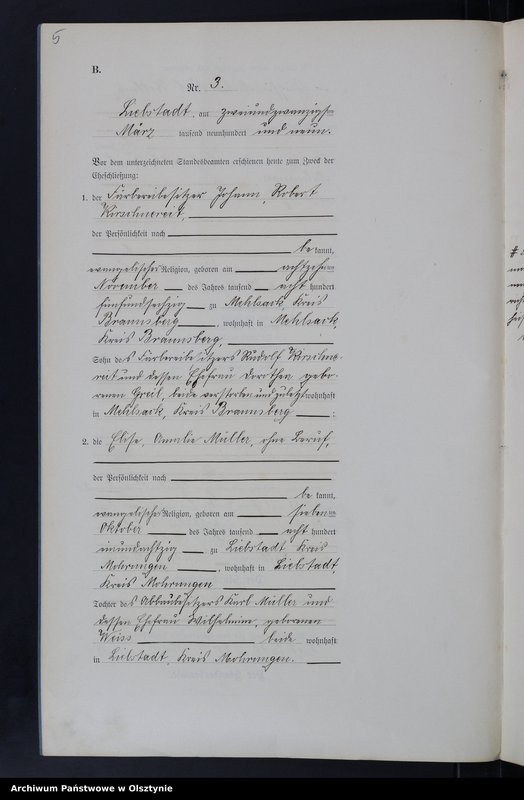 5
B.
Nr. 3.
Liebstadt, am zweiundzwanzigsten
März tausend neunhundert und neun.
Vor dem unterzeichneten Standesbeamten erschienen heute zum Zweck der
Eheschließung:
1. der Färbereibesitzer Johann Robert
Kirschnereit,
der Persönlichkeit nach
be kannt,
evangelischer Religion, geboren am achtzehnten
November des Jahres tausend acht hundert
fünfundsechzig zu Mehlsack, Kreis
Braunsberg, wohnhaft in Mehlsack,
Kreis Braunsberg,
Sohn des Färbereibesitzers Rudolf Kirschne-
reit und dessen Ehefrau Dorothea, gebo-
renen Greil, beide verstorben und zuletzt wohnhaft
in Mehlsack, Kreis Braunsberg ;
2. die Elise, Amalie Müller, ohne Beruf,
der Persönlichkeit nach
be kannt,
evangelischer Religion, geboren am sieben ten
Oktober des Jahres tausend acht hundert
zu Liebstadt, Kreis
Mohrungen, wohnhaft in Liebstadt,
Kreis Mohrungen
Tochter des Abbaubesitzers Karl Müller und
dessen Ehefrau Wilhelmine, geborenen
Weiss beide wohnhaft
in Liebstadt, Kreis Mohrungen.
Archiwum Państwowe w Olsztynie